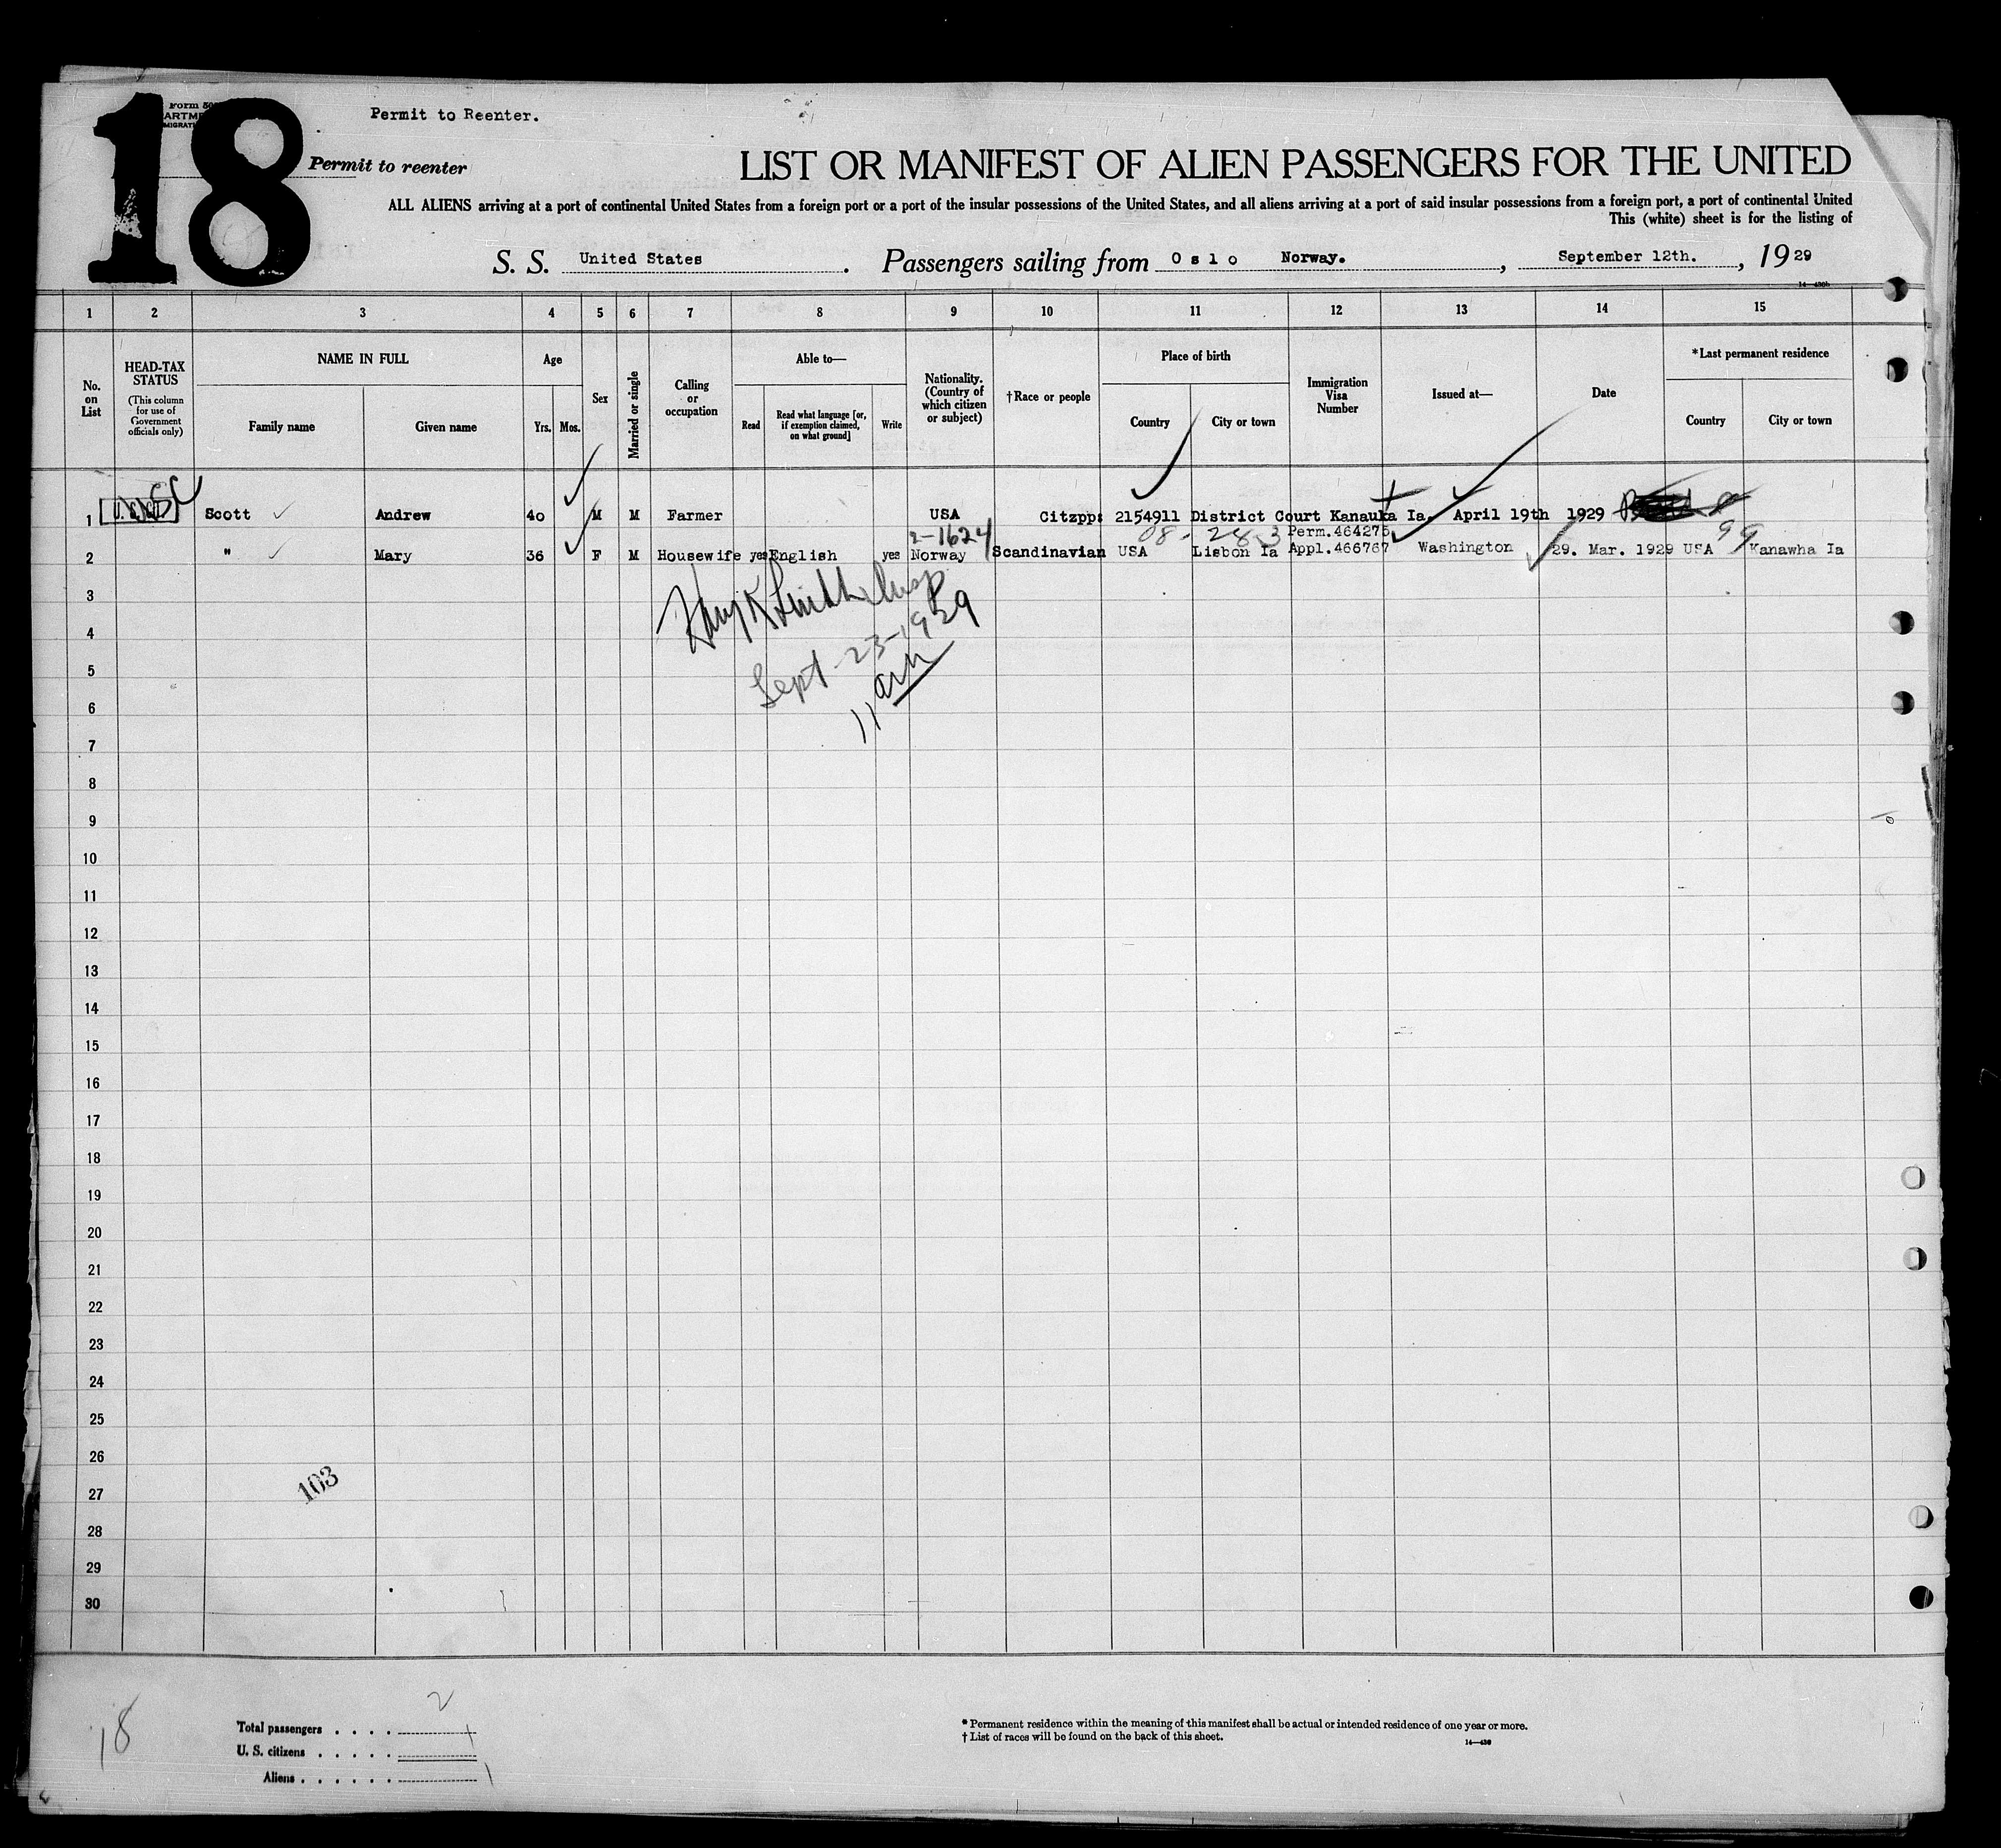 18
Form 50
Permit to Reenter.
Permit to reenter
LIST OR MANIFEST OF ALIEN PASSENGERS FOR THE UNITED
ALL ALIENS arriving at a port of continental United States from a foreign port or a port of the insular possessions of the United States, and all aliens arriving at a port of said insular possessions from a foreign port, a port of continental United
This (white) sheet is for the listing of
S. S. United States. Passengers sailing from Oslo Norway., September 12th., 1929
1 2 3 4 5 6 7 8 9 10 11 12 13 14 15
No. on List
HEAD-TAX STATUS
(This column for use of Government officials only)
NAME IN FULL
Family name
Given name
Age
Yrs.
Mos.
Sex
Married or single
Calling or occupation
Able to—
Read
Read what language [or, if exemption claimed, on what ground]
Write
Nationality. (Country of which citizen or subject)
†Race or people
Place of birth
Country
City or town
Immigration Visa Number
Issued at—
Date
*Last permanent residence
Country
City or town
1 Scott Andrew 40 M M Farmer USA Citzpp: 2154911 District Court Kanauka Ia. April 19th 1929
2-1624 Perm.464275 99
2 " Mary 36 F M Housewife yes English yes Norway Scandinavian USA Lisbon Ia Appl.466767 Washington 29. Mar. 1929 USA Kanawha Ia
3
Sept-23-1929
4
5
6
7
8
9
10
11
12
13
14
15
16
17
18
19
20
21
22
23
24
25
26
103
27
28
29
30
18
2
Total passengers . . . .
U. S. citizens . . . . . 1
Aliens . . . . . . 1
* Permanent residence within the meaning of this manifest shall be actual or intended residence of one year or more.
† List of races will be found on the back of this sheet.